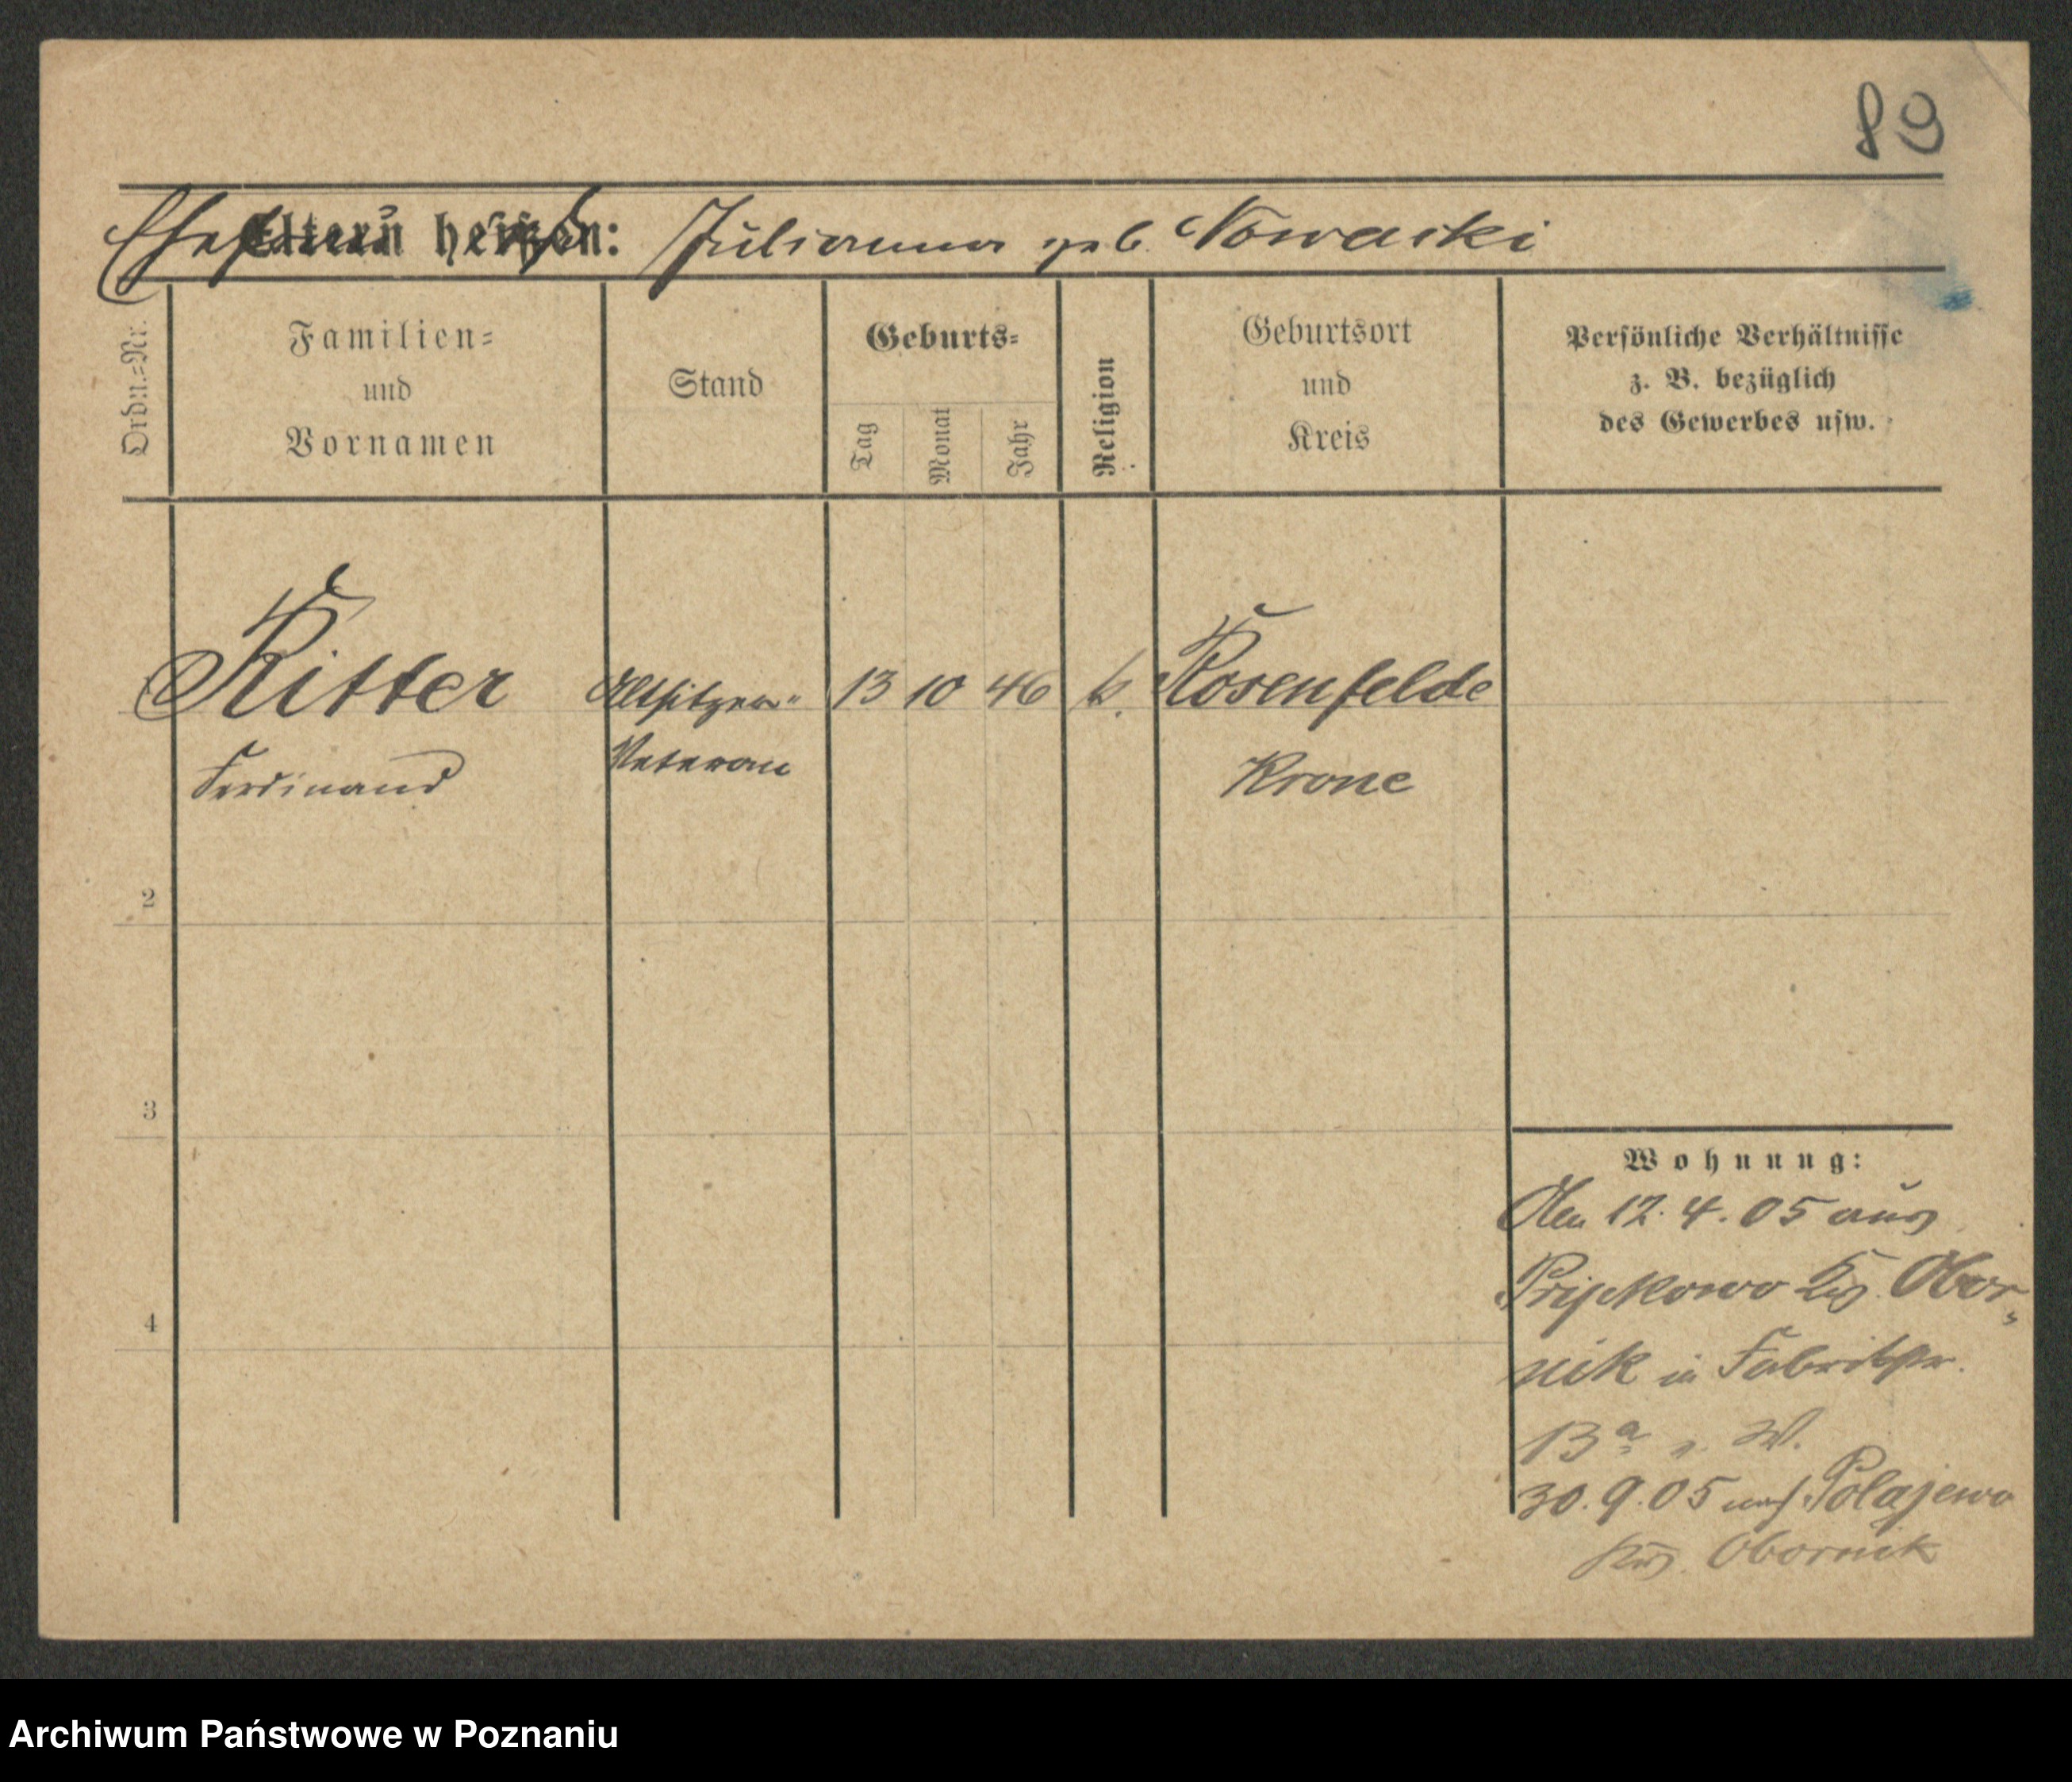 89
Eltern heißen: Julianna geb. Nowacki
Ordn.=Nr.
Familien=
und
Vornamen
Stand
Geburts=
Tag
Monat
Jahr
Religion
Geburtsort
und
Kreis
Persönliche Verhältnisse
z. B. bezüglich
des Gewerbes usw.
Ritter Altsitzer 13 10 46 k. Rosenfelde
Ferdinand Veteran Krone
2
3
4
Wohnung:
Den 12. 4. 05 aus
Krs. Obor-
nik in Fabrikstr.
13a W.
30. 9. 05 nach Polajewo
Krs. Obornik
Archiwum Państwowe w Poznaniu